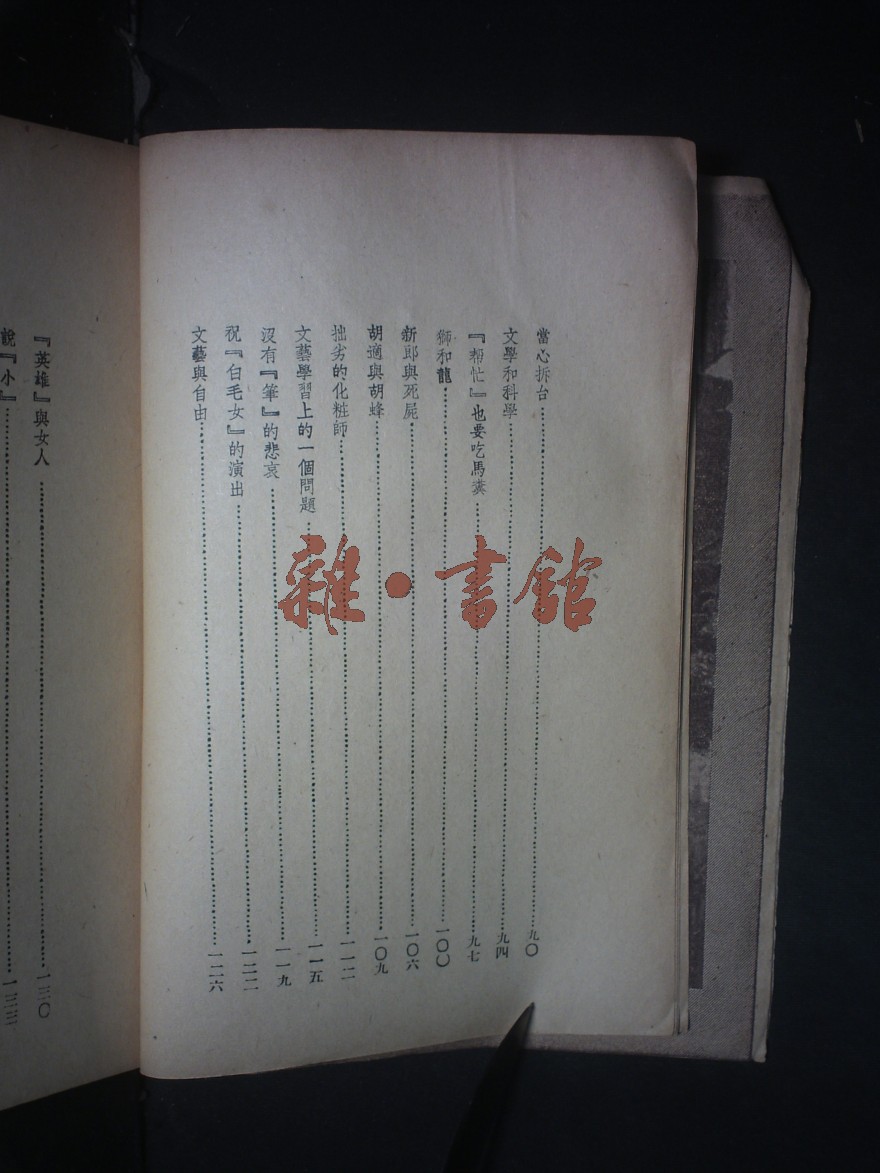 當心拆台……九〇
文學和科學……九四
『帮忙』也要吃馬糞……九七
獅和龍……一〇〇
新郎與死屍……一〇六
胡適與胡蜂……一〇九
拙劣的化粧師……一一二
文藝學習上的一個問題……一一五
沒有『筆』的悲哀……一一九
祝『白毛女』的演出……一二二
文藝與自由……一二六
『英雄』與女人……一三〇
說『小』……一三三
雜·書館